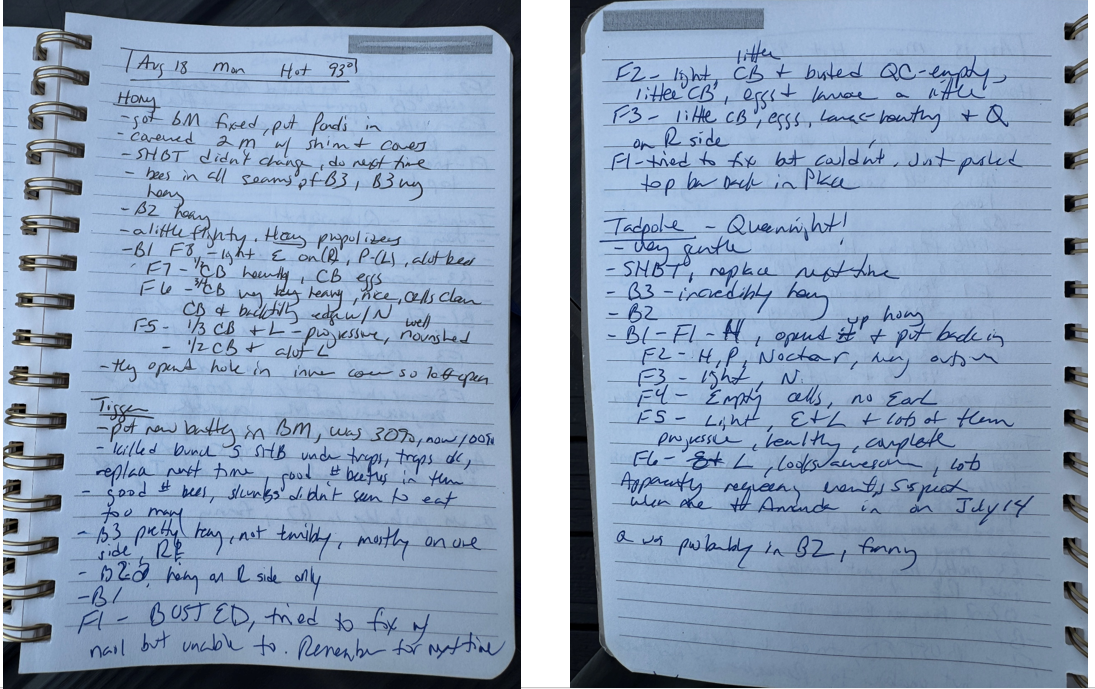 Aug 18 Mon Hot 93°
Hony
- got BM fixed, put Pands in
- covered 2 m w/ shim + covers
- SHBT didn't change, do next time
- bees in all seams of B3, B3 very
heavy
- B2 heavy
- a little flighty. Heavy propolizers
- B1 F8 - light E on (R), P-(L), a lot bees
F7 - 1/2 CB healthy, CB eggs
F6 - 3/4 CB very heavy, nice, cells clean
CB + backfilling edge w/ N
F5 - 1/3 CB + L - progressive, well nourished
- 1/2 CB + alot L
- they opened hole in inner cover so left open
Tigger
- put new battery in BM, was 30%, now 100%
- killed bunch SHB under traps, traps ok,
replace next time good # beetles in them
- good # bees, skunks didn't seem to eat
too many
- B3 pretty heavy, not terribly, mostly on one
side, R
- B2, heavy on R side only
- B1
F1 - BUSTED, tried to fix w/
nail but unable to. Remember for next time
F2 - light, little CB + busted QC - empty,
little CB, eggs + larvae a little
F3 - little CB, eggs, larvae healthy + Q
on R side
F1 - tried to fix but couldn't. Just pushed
top bar back in place
Tadpole - Queenright!
- Very gentle
- SHBT, replace next time
- B3 - incredibly heavy
- B2
- B1 - F1 - H, opened it up + put back in
F2 - H, P, Nectar, very
F3 - light, N.
F4 - Empty cells, no
F5 - Light, E+L + lots of them
progressive, healthy, complete
F6 - L, looks awesome, lots
Apparently requeening wasn't, suspect
when one in on July 14
Q was probably in B2, funny